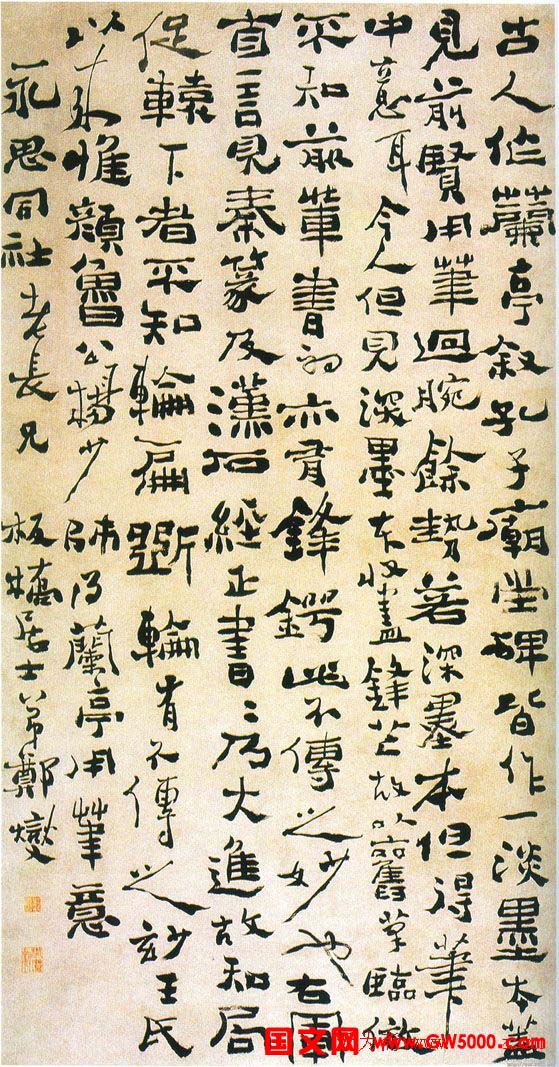 古人作蘭亭叙孔子廟堂碑皆作一淡墨本蓋
見前賢用筆迴腕餘勢若深墨本但得筆
中意耳今人但見深墨本收盡鋒芒故以舊筆臨倣
不知前輩書初亦有鋒鍔此不傳之妙也右軍
自言見秦篆及漢石經正書〻乃大進故知局
促轅下者不知輪扁斵輪有不傳之妙王氏
以來惟顔魯公楊少師得蘭亭用筆意
永思同社老長兄 板橋居士弟鄭燮
国文网 www.GW5000.com